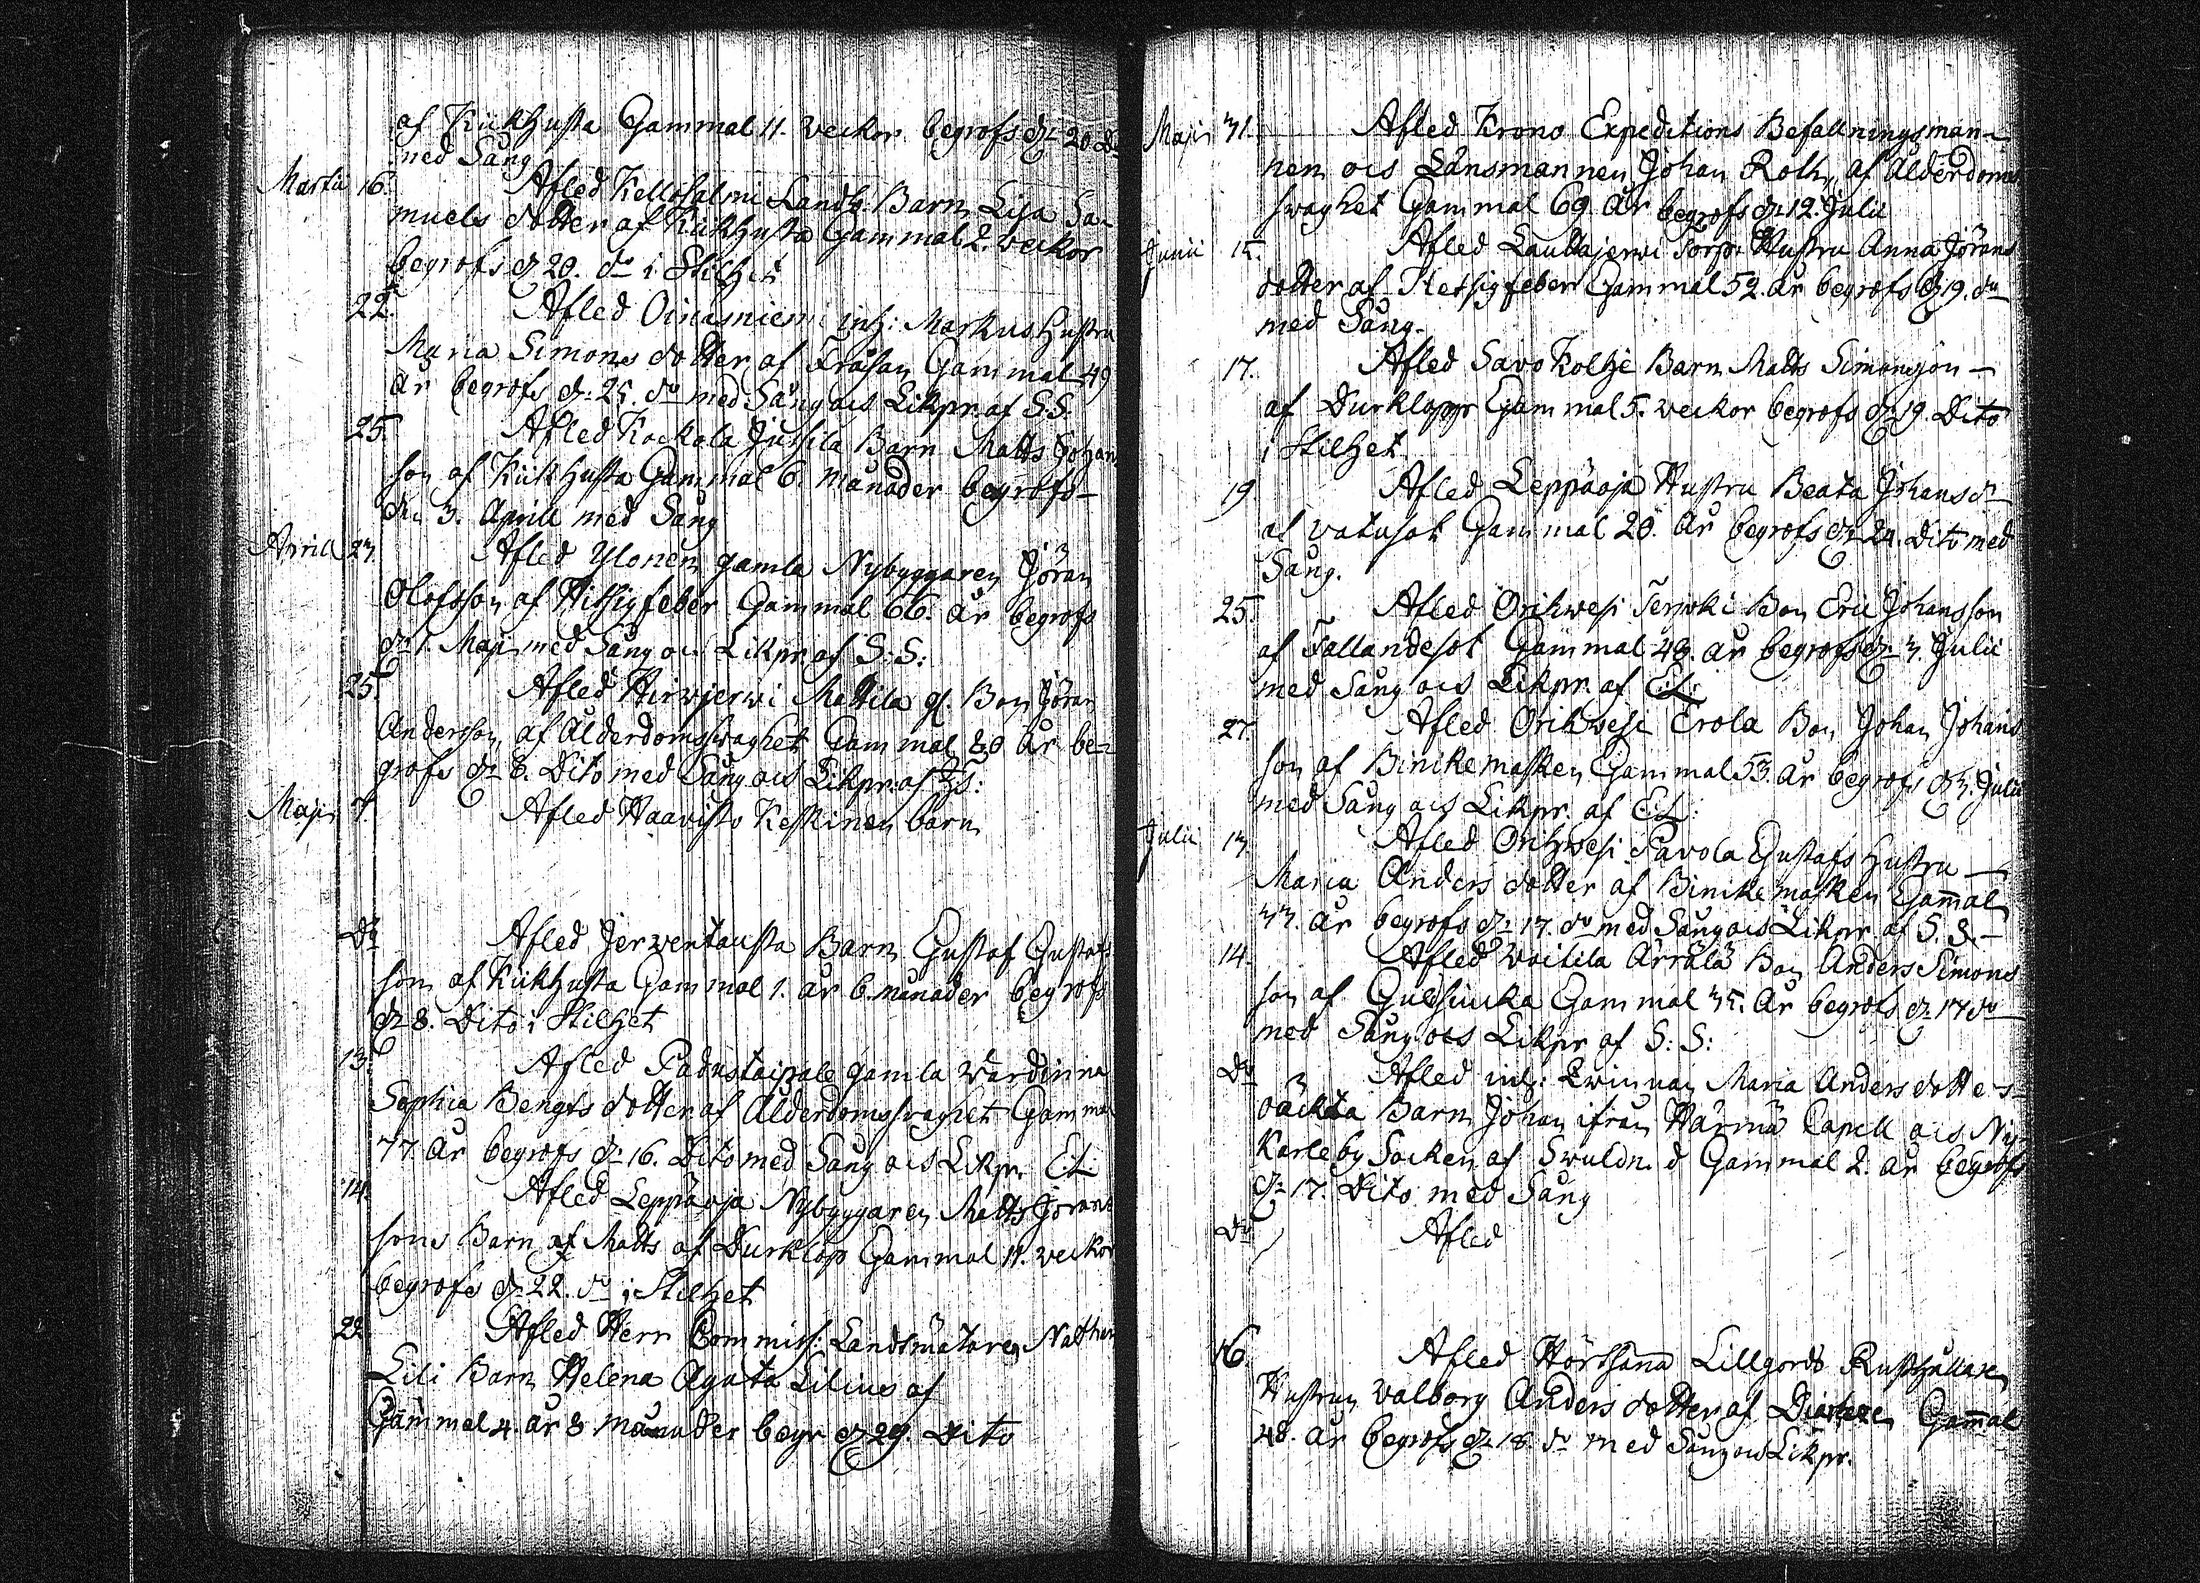 af Kikhusta Gammal 11. veckor begrofs d. 20. Do
med Sång
Martii 16. Afled Kellosalmi Landb. Barn Lisa Sa-
muels dotter af Kikhusta Gammal 2. veckor
begrofs d. 20. do i Stilhet
22. Afled Oinasniemi inh: Markus Hustru
Maria Simons dotter af Fråsan Gammal 49
år begrofs d. 25. do med Sång och Likpr. af S.S.
25. Afled Kockola Jussila Barn Matts Johan
son af Kikhusta Gammal 6. månader begrofs
d. 3. Aprill med Sång
Aprill 23. Afled Ylonen gamla Nybyggaren Jöran
Olofsson af Hitsigfeber Gammal 66. år begrofs
d. 1. Maji med Sång och Likpr. af S: S:
25. Afled Hirvjerwi Mattila gl. Bon Jöran
Andersson af Ålderdomsswaghet Gammal 80 år be-
grofs d. 8. Dito med Sång och Likpr. af
Maji 7. Afled Haavisto Keskinen barn
Do Afled Jerventausta Barn Gustaf Gustafs
son af Kikhusta Gammal 1. år 6. månader begrofs
d. 8. Dito i Stilhet
13. Afled Padustaipale gamla wärdinna
Sophia Bengts dotter af Ålderdomsswaghet Gammal
77. år begrofs d. 16. Dito med Sång och Likpr. E:L
14. Afled Leppäoja Nybyggaren Matts Jörans
sons Barn af Matts af Durklop Gammal 11. veckor
begrofs d. 22. do i Stilhet
22. Afled Herr Commiss: Landtmätaren Nathan
Lili Barn Helena Agata Lilius af
Gammal 4. år 8 månader begr d. 29. Dito
Maji 31. Afled Krono Expeditions Befallningsman-
nen och Länsmannen Johan Roth, af Ålderdoms
swaghet Gammal 69. År begrofs d. 12. Julii
Junii 15. Afled Lauttajerwi Torpe Hustru Anna Jörans
dotter af Hetsigfeber Gammal 52. år begrofs d. 19. do
med Sång.
17. Afled Savo Koltze Barn Matts Simonson
af Durklopp Gammal 5. veckor begrofs d. 19. Dito
i Stilhet
19 Afled Leppäoja Hustru Beata Johansdr
af vatusot Gammal 20. år begrofs d. 24. Dito med
Sång.
25. Afled Orihwesi Terwoki Bon Eric Johansson
af Fallandesot Gammal 49. år begrofs d. 3. Julii
med Sång och Likpr. af E:L:
27. Afled Orihwesi Erola Bon Johan Johans
son af Binikemasken Gammal 53. år begrofs d. 3. Julii
med Sång och Likpr. af E:L:
Julii 13. Afled Orihwesi Pavola Gustafs Hustru
Maria Anders dotter af Binikemasken Gammal
33. år begrofs d. 17. do med Sång och Likpr af S. S.
14. Afled Voitila Ärrälä Bon Anders Simons
son af Gulsiucka Gammal 35. år begrofs d. 17 do
med Sång och Likpr af S: S:
Do Afled inh: Qwinnan Maria Anders dotters
oäckta Barn Johan ifrån Härmä Capell och Ny-
Karleby Socken af Swuldn d Gammal 2. år begrofs
d. 17. Dito med Sång
Do Afled
16. Afled Hörtsana Lillgords Rusthållare
Hustrun Valborg Anders dotter af Diarheen Gammal
48. år begrofs d. 18. do med Sång och Likpr.